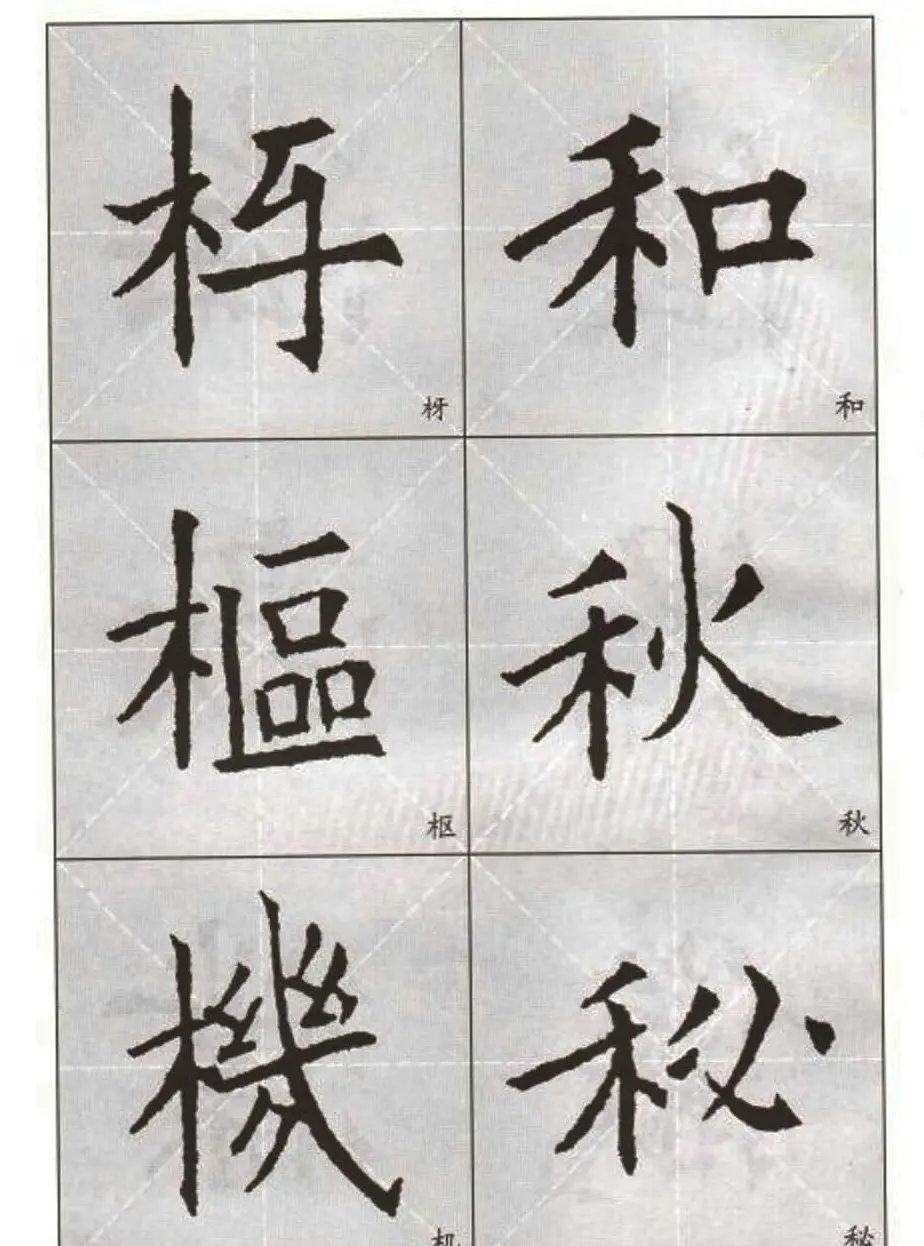 和
和
秋
秋
秘
秘
枒
枒
樞
枢
機
机